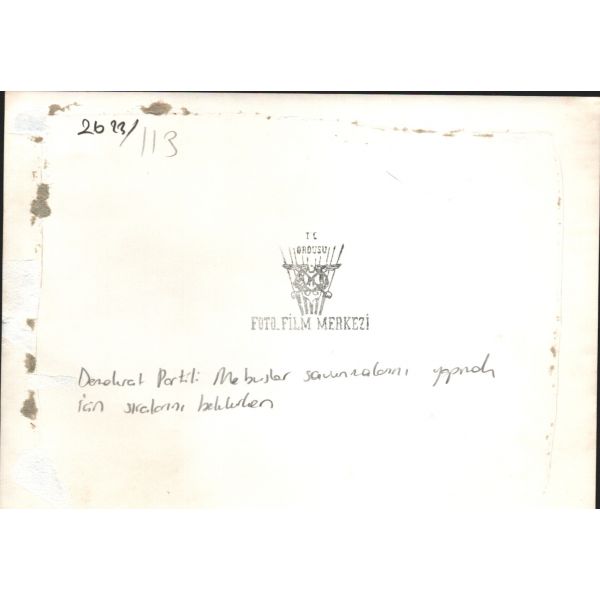 2623/
113
T C
ORDUSU
FOTO FİLM MERKEZİ
Demokrat Partili Mebuslar savunmalarını yapmak
için sıralarını beklerken